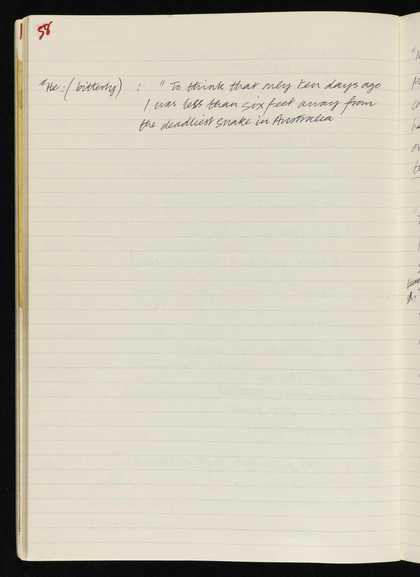 58
"He: (bitterly) : "To think that only ten days ago
I was less than six feet away from
the deadliest snake in Australia